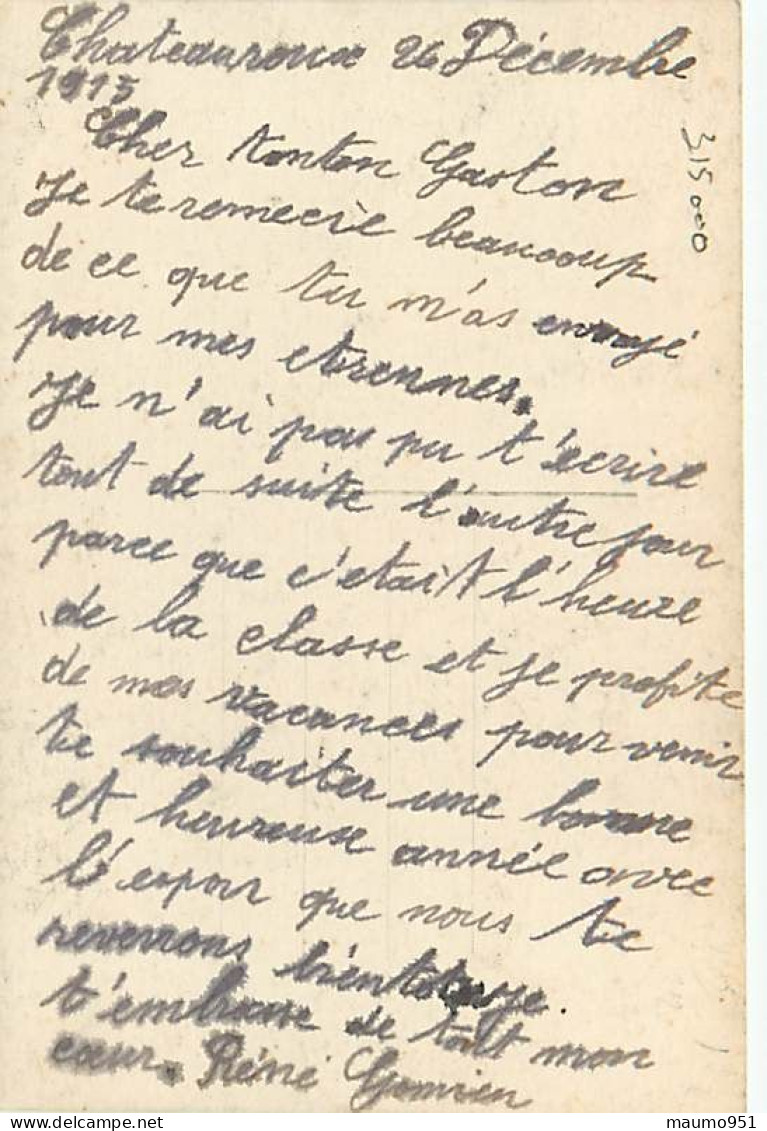 Chateauroux 26 Décembre
1915
Cher tonton Gaston
Je te remecie beaucoup
de ce que tu m'as envoyé
pour mes etrennes.
Je n'ai pas pu t'écrire
tout de suite l'autre jour
parce que c'etait l'heure
de la classe et je profite
de mes vacances pour venir
te souhaiter une bonne
et heureuse année avec
l'éspoir que nous te
reverrons bientot je
t'embrasse de tout mon
coeur. Réné
315000
maumo951